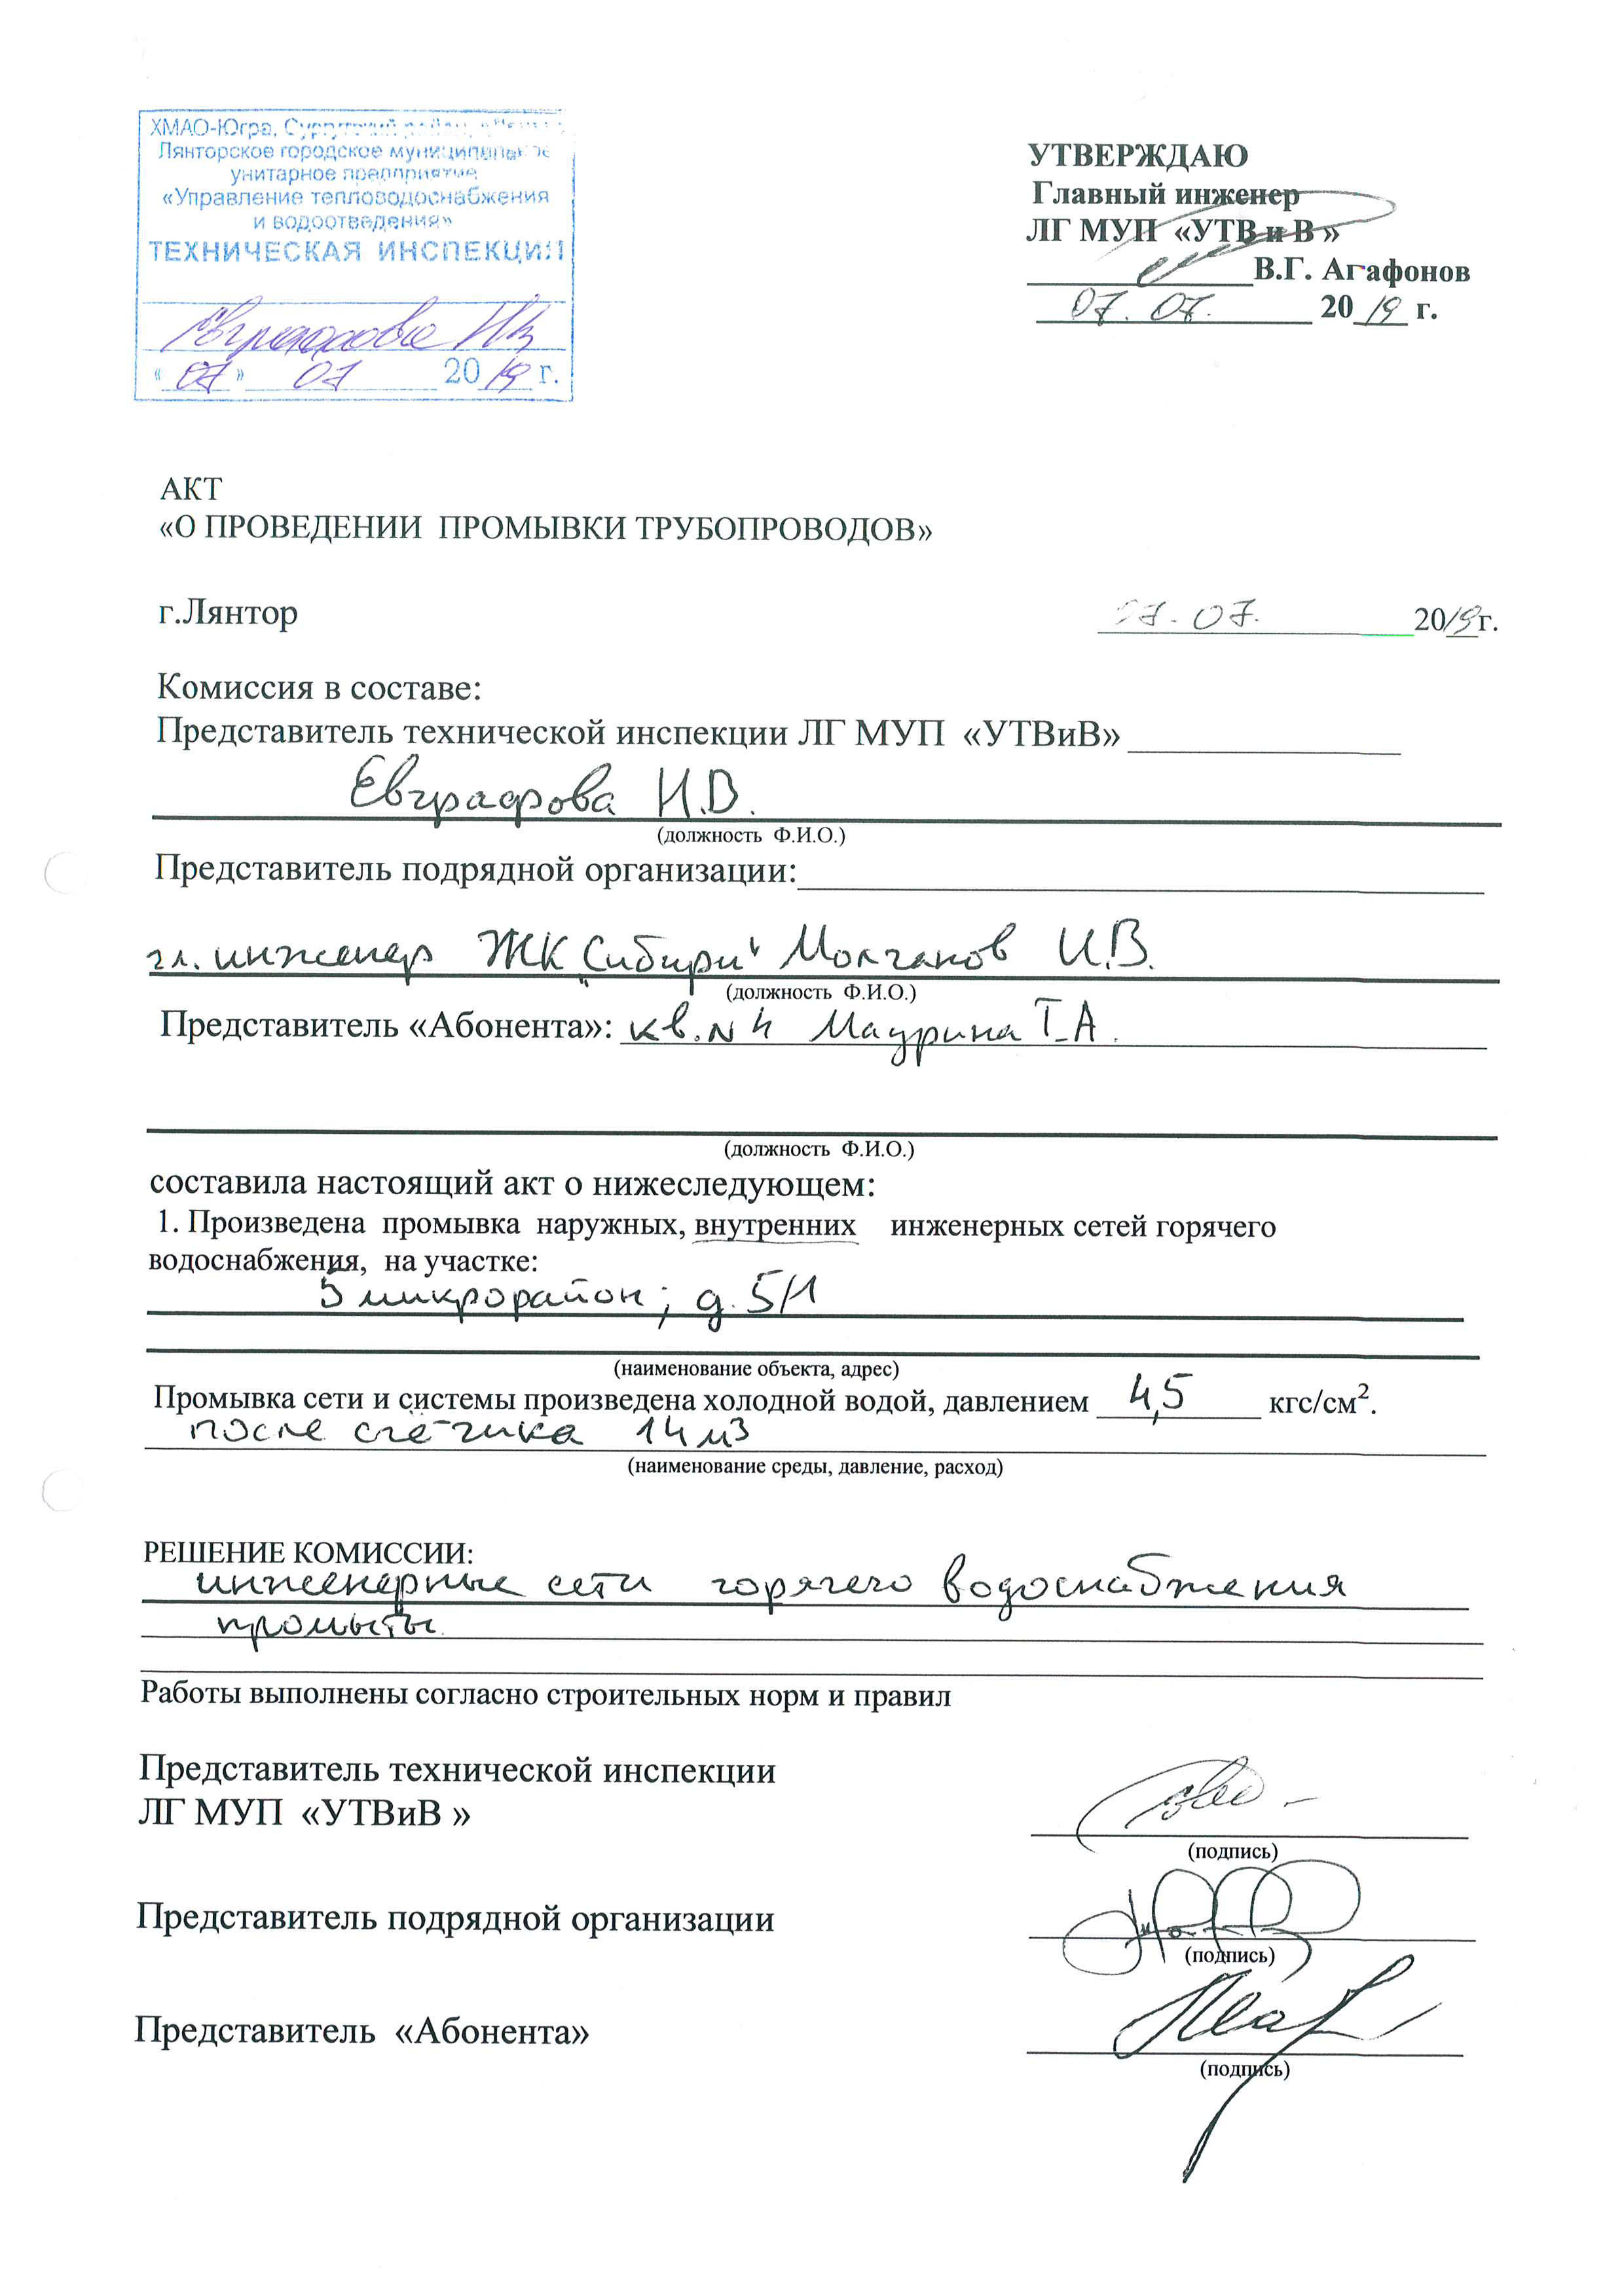 ХМАО-Югра, Сургутский район,
Лянторское городское муниципальное
унитарное предприятие
«Управление тепловодоснабжения
и водоотведения»
ТЕХНИЧЕСКАЯ ИНСПЕКЦИЯ
Евграфова И.В.
«07» 07 2019 г.
УТВЕРЖДАЮ
Главный инженер
ЛГ МУП «УТВ и В »
В.Г. Агафонов
07. 07. 2019 г.
АКТ
«О ПРОВЕДЕНИИ ПРОМЫВКИ ТРУБОПРОВОДОВ»
г.Лянтор 07. 07. 2019г.
Комиссия в составе:
Представитель технической инспекции ЛГ МУП «УТВиВ»
Евграфова И.В.
(должность Ф.И.О.)
Представитель подрядной организации:
гл. инженер ЖК „Сибири" Молчанов И.В.
(должность Ф.И.О.)
Представитель «Абонента»: кв. N 4 Маурина Т.А.
(должность Ф.И.О.)
составила настоящий акт о нижеследующем:
1. Произведена промывка наружных, внутренних инженерных сетей горячего
водоснабжения, на участке:
5 микрорайон; д. 5/1
(наименование объекта, адрес)
Промывка сети и системы произведена холодной водой, давлением 4,5 кгс/см².
после счётчика 14 м3
(наименование среды, давление, расход)
РЕШЕНИЕ КОМИССИИ:
инженерные сети горячего водоснабжения
промыты.
Работы выполнены согласно строительных норм и правил
Представитель технической инспекции
ЛГ МУП «УТВиВ »
(подпись)
Представитель подрядной организации
(подпись)
Представитель «Абонента»
(подпись)